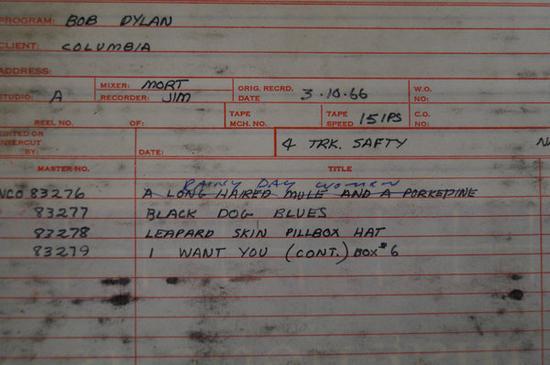 PROGRAM: BOB DYLAN
CLIENT: COLUMBIA
ADDRESS:
STUDIO: A MIXER: MORT RECORDER: JIM ORIG. RECRD. DATE 3·10·66 W.O. NO:
REEL NO. OF: TAPE MCH. NO. TAPE SPEED 15 IPS C.O. NO:
EDITED OR INTERCUT BY: DATE: 4 TRK. SAFTY
MASTER NO. TITLE
RAINY DAY WOMEN
NCO 83276 A LONG HAIRED MULE AND A PORKEPINE
83277 BLACK DOG BLUES
83278 LEAPARD SKIN PILLBOX HAT
83279 I WANT YOU (CONT.) BOX #6